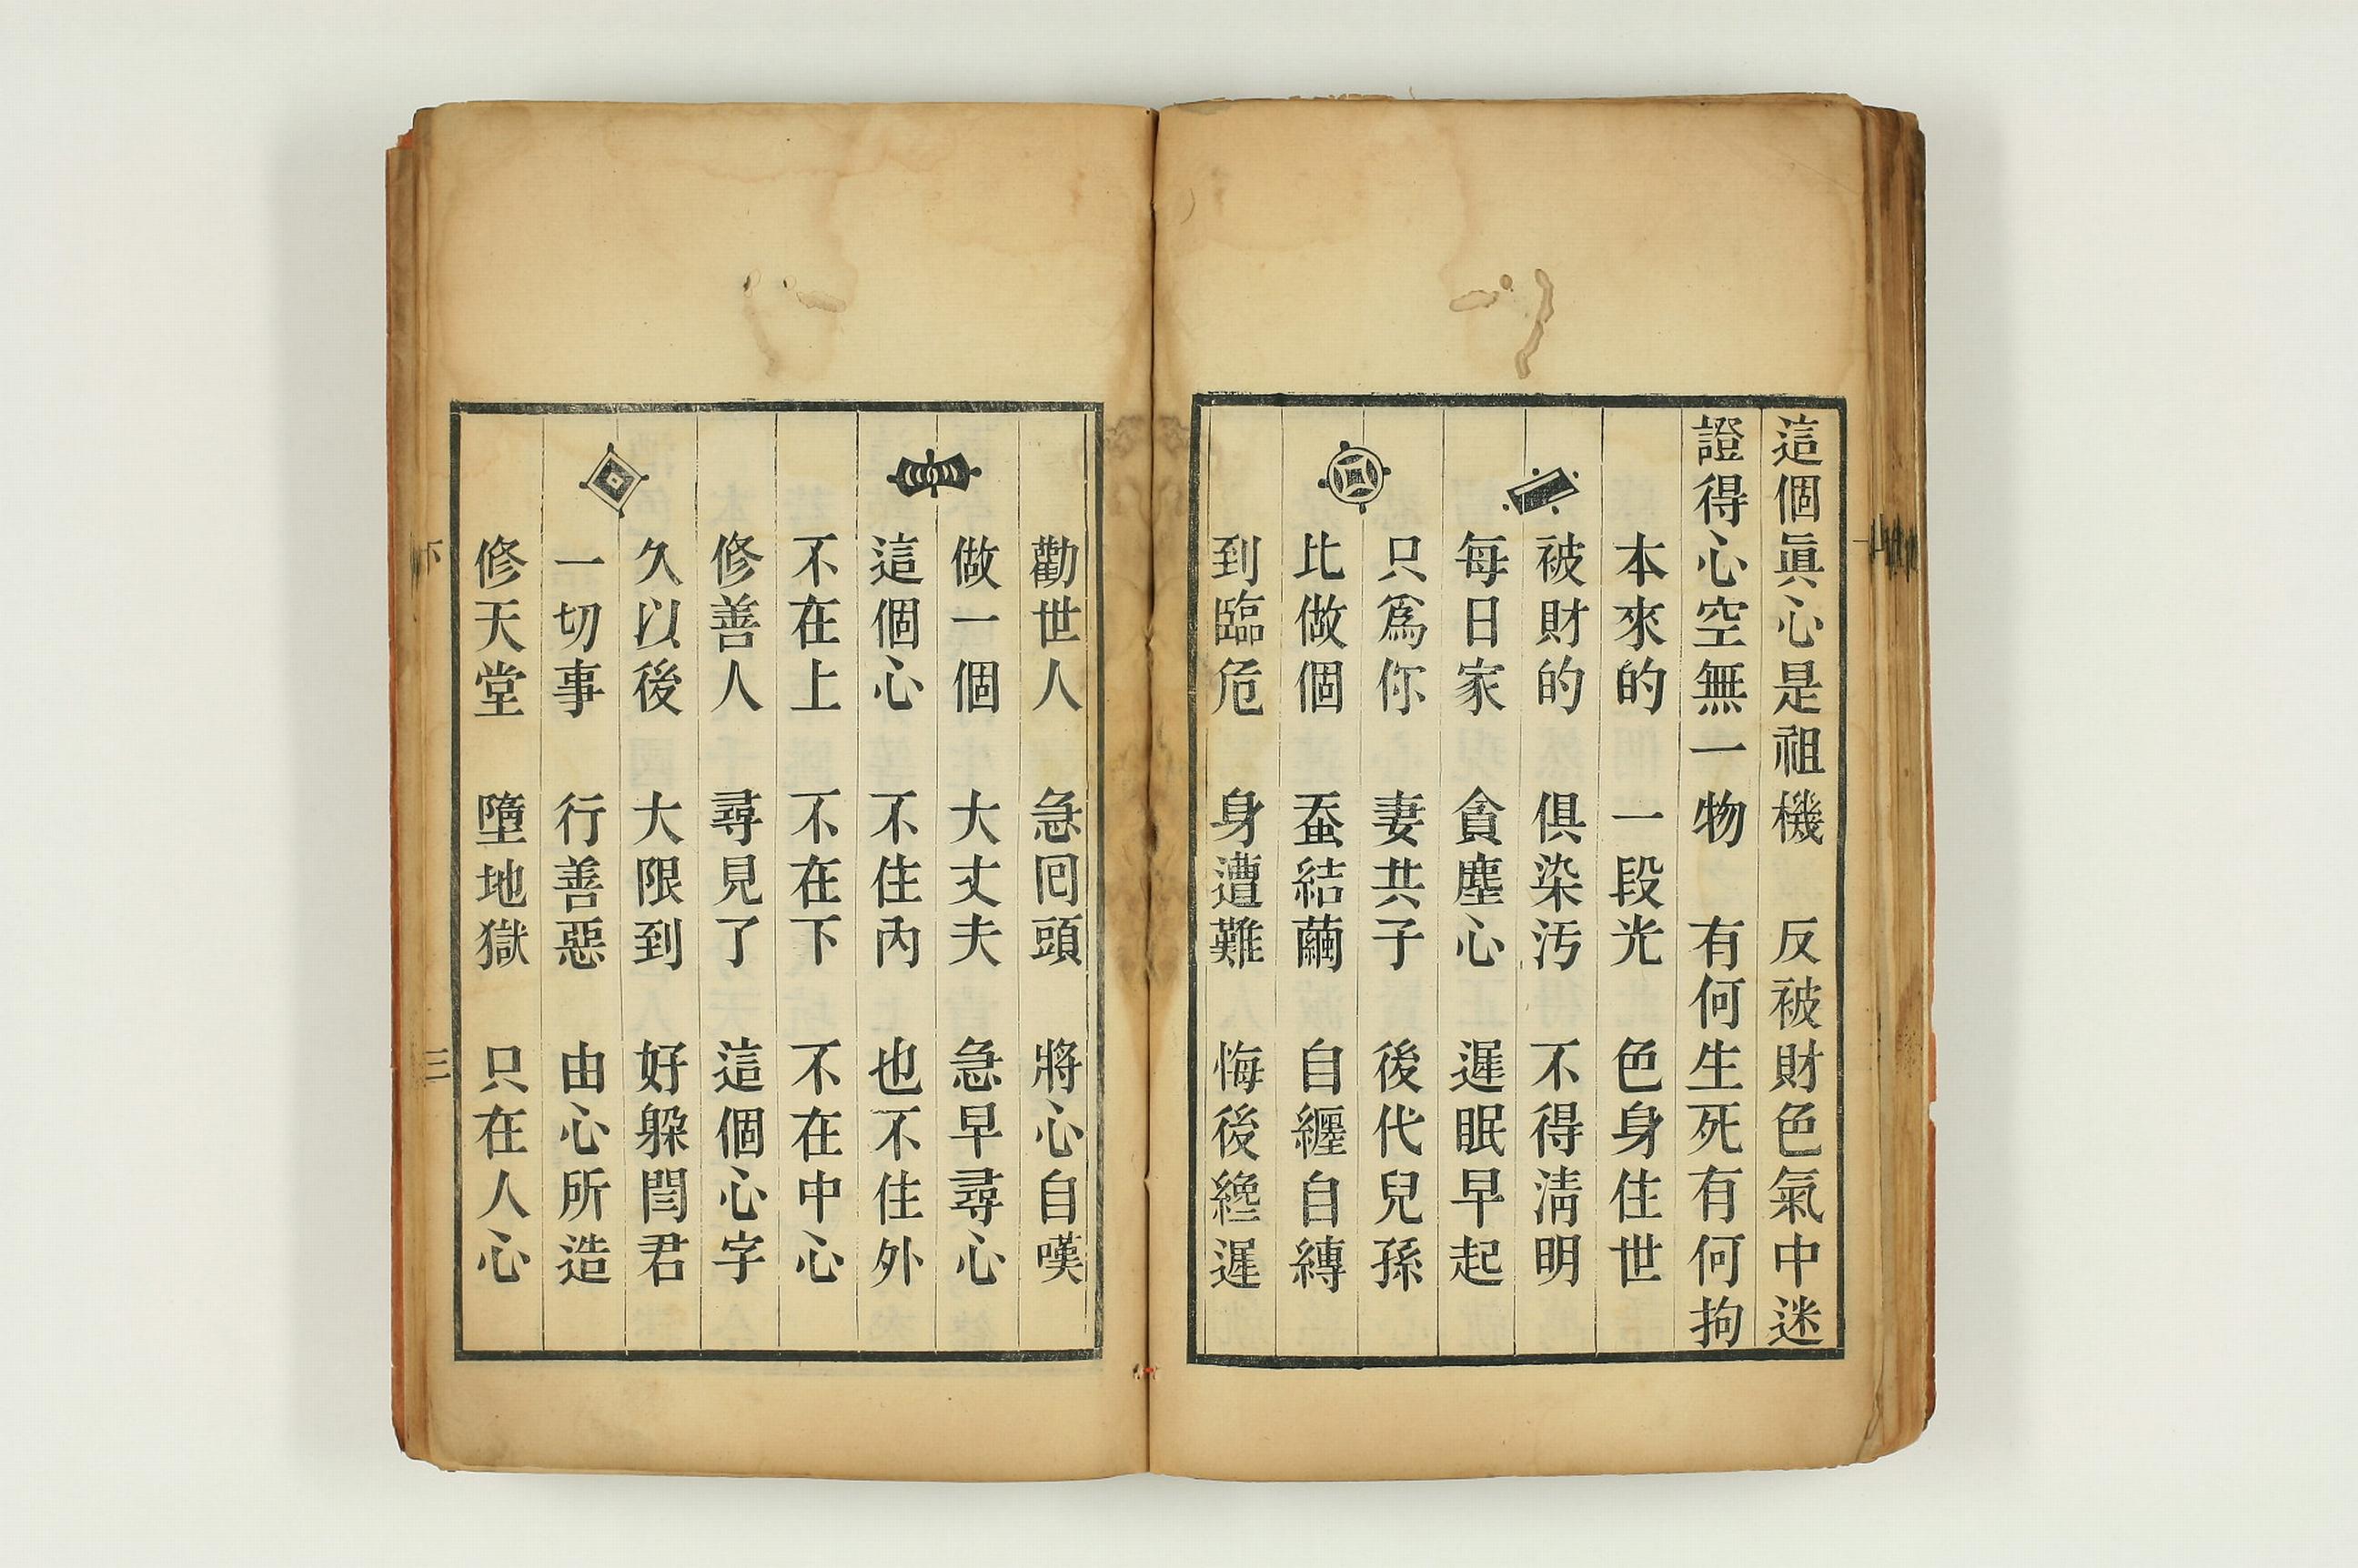 這個眞心是祖機　反被財色氣中迷
證得心空無一物　有何生死有何拘
本來的　一段光　色身住世
被財的　俱染汚　不得淸明
每日家　貪塵心　遲眠早起
只爲你　妻共子　後代兒孫
比做個　蚕結繭　自纏自縛
到臨危　身遭難　悔後纔遲
勸世人　急囘頭　將心自嘆
做一個　大丈夫　急早尋心
這個心　不住內　也不住外
不在上　不在下　不在中心
修善人　尋見了　這個心字
久以後　大限到　好躱閻君
一切事　行善惡　由心所造
修天堂　墮地獄　只在人心
下　三